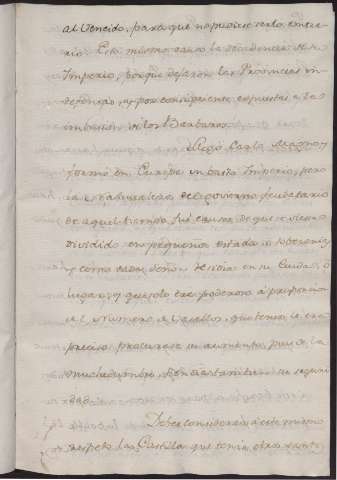 al Vencido, para que no pudiese serlo, 
rio. Esto mismo causó la decadencia del
Imperio, porque dejaron las Provincias in-
defensas, y por consiguiente expuestas a la
imbasion de los Barbaros.
Llegó Carlo Magno, y
formó en Europa un basto Imperio, pero
la naturaleza del govierno feudatario
de aquel tiempo fué causa de que se viese
dividido en pequeños estados, o soberanias
como cada Señor residia en su Ciudad, o
lugar, y que solo era poderoso á proporcion
del Numero de Vasallos, que tenia, le era
preciso procurase su aumento, pues la
muchedumbre, hacia tambien su seguri
dad.
Debe considerarse á este mismo
respeto la Castilla que tenia otro tanto